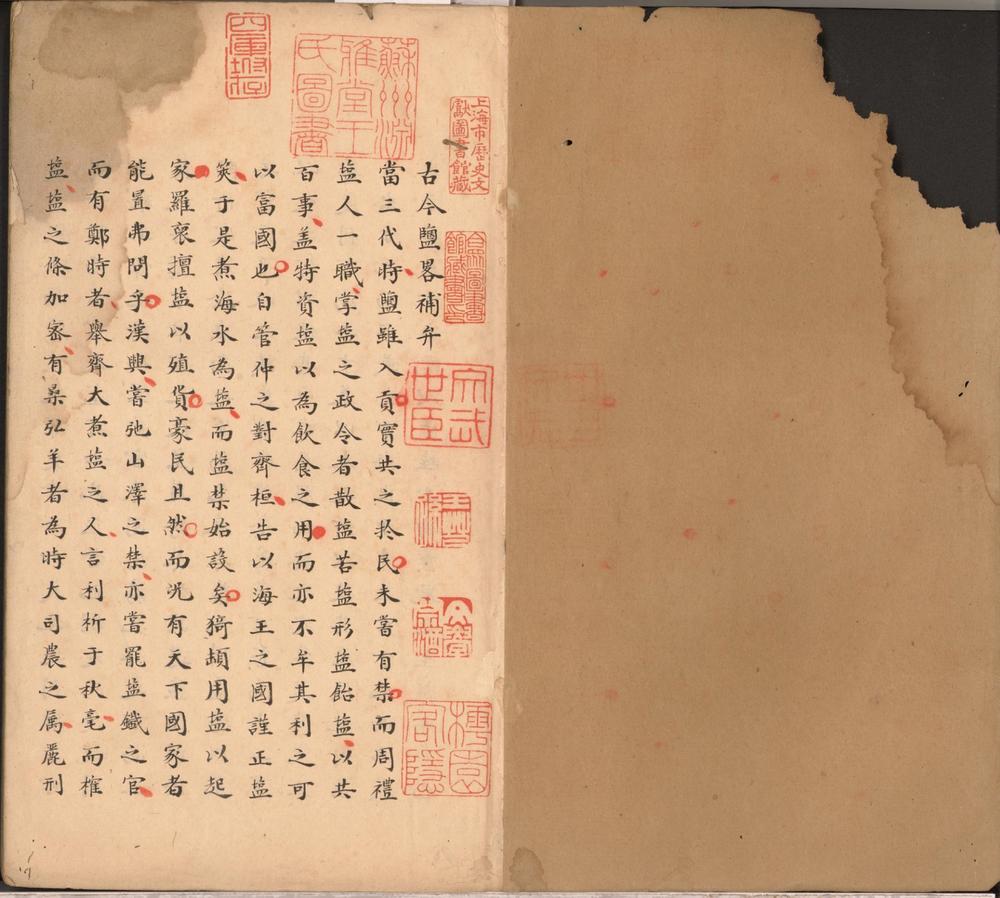 古今鹽畧補弁
當三代時鹽雖入貢實共之扵民未嘗有禁而周禮
鹽人一職掌鹽之政令者散鹽苦鹽形鹽飴鹽以共
百事盖特資鹽以為飲食之用而亦不牟其利之可
以富國也自管仲之對齊桓告以海王之國謹正鹽
筴于是煮海水為鹽而鹽禁始設矣猗頓用鹽以起
家羅裒擅鹽以殖貨豪民且然而况有天下國家者
能置弗問乎漢興嘗弛山澤之禁亦嘗罷鹽鐵之官
而有鄭時者舉齊大煮鹽之人言利析于秋毫而榷
鹽鹽之條加宻有桑弘羊者為時大司農之属麗刑
上海市歷史文
獻圖書館藏
蘇州流
雅堂王
氏圖書
合眾圖書
館藏書印
文武
世臣
樗園
客隱